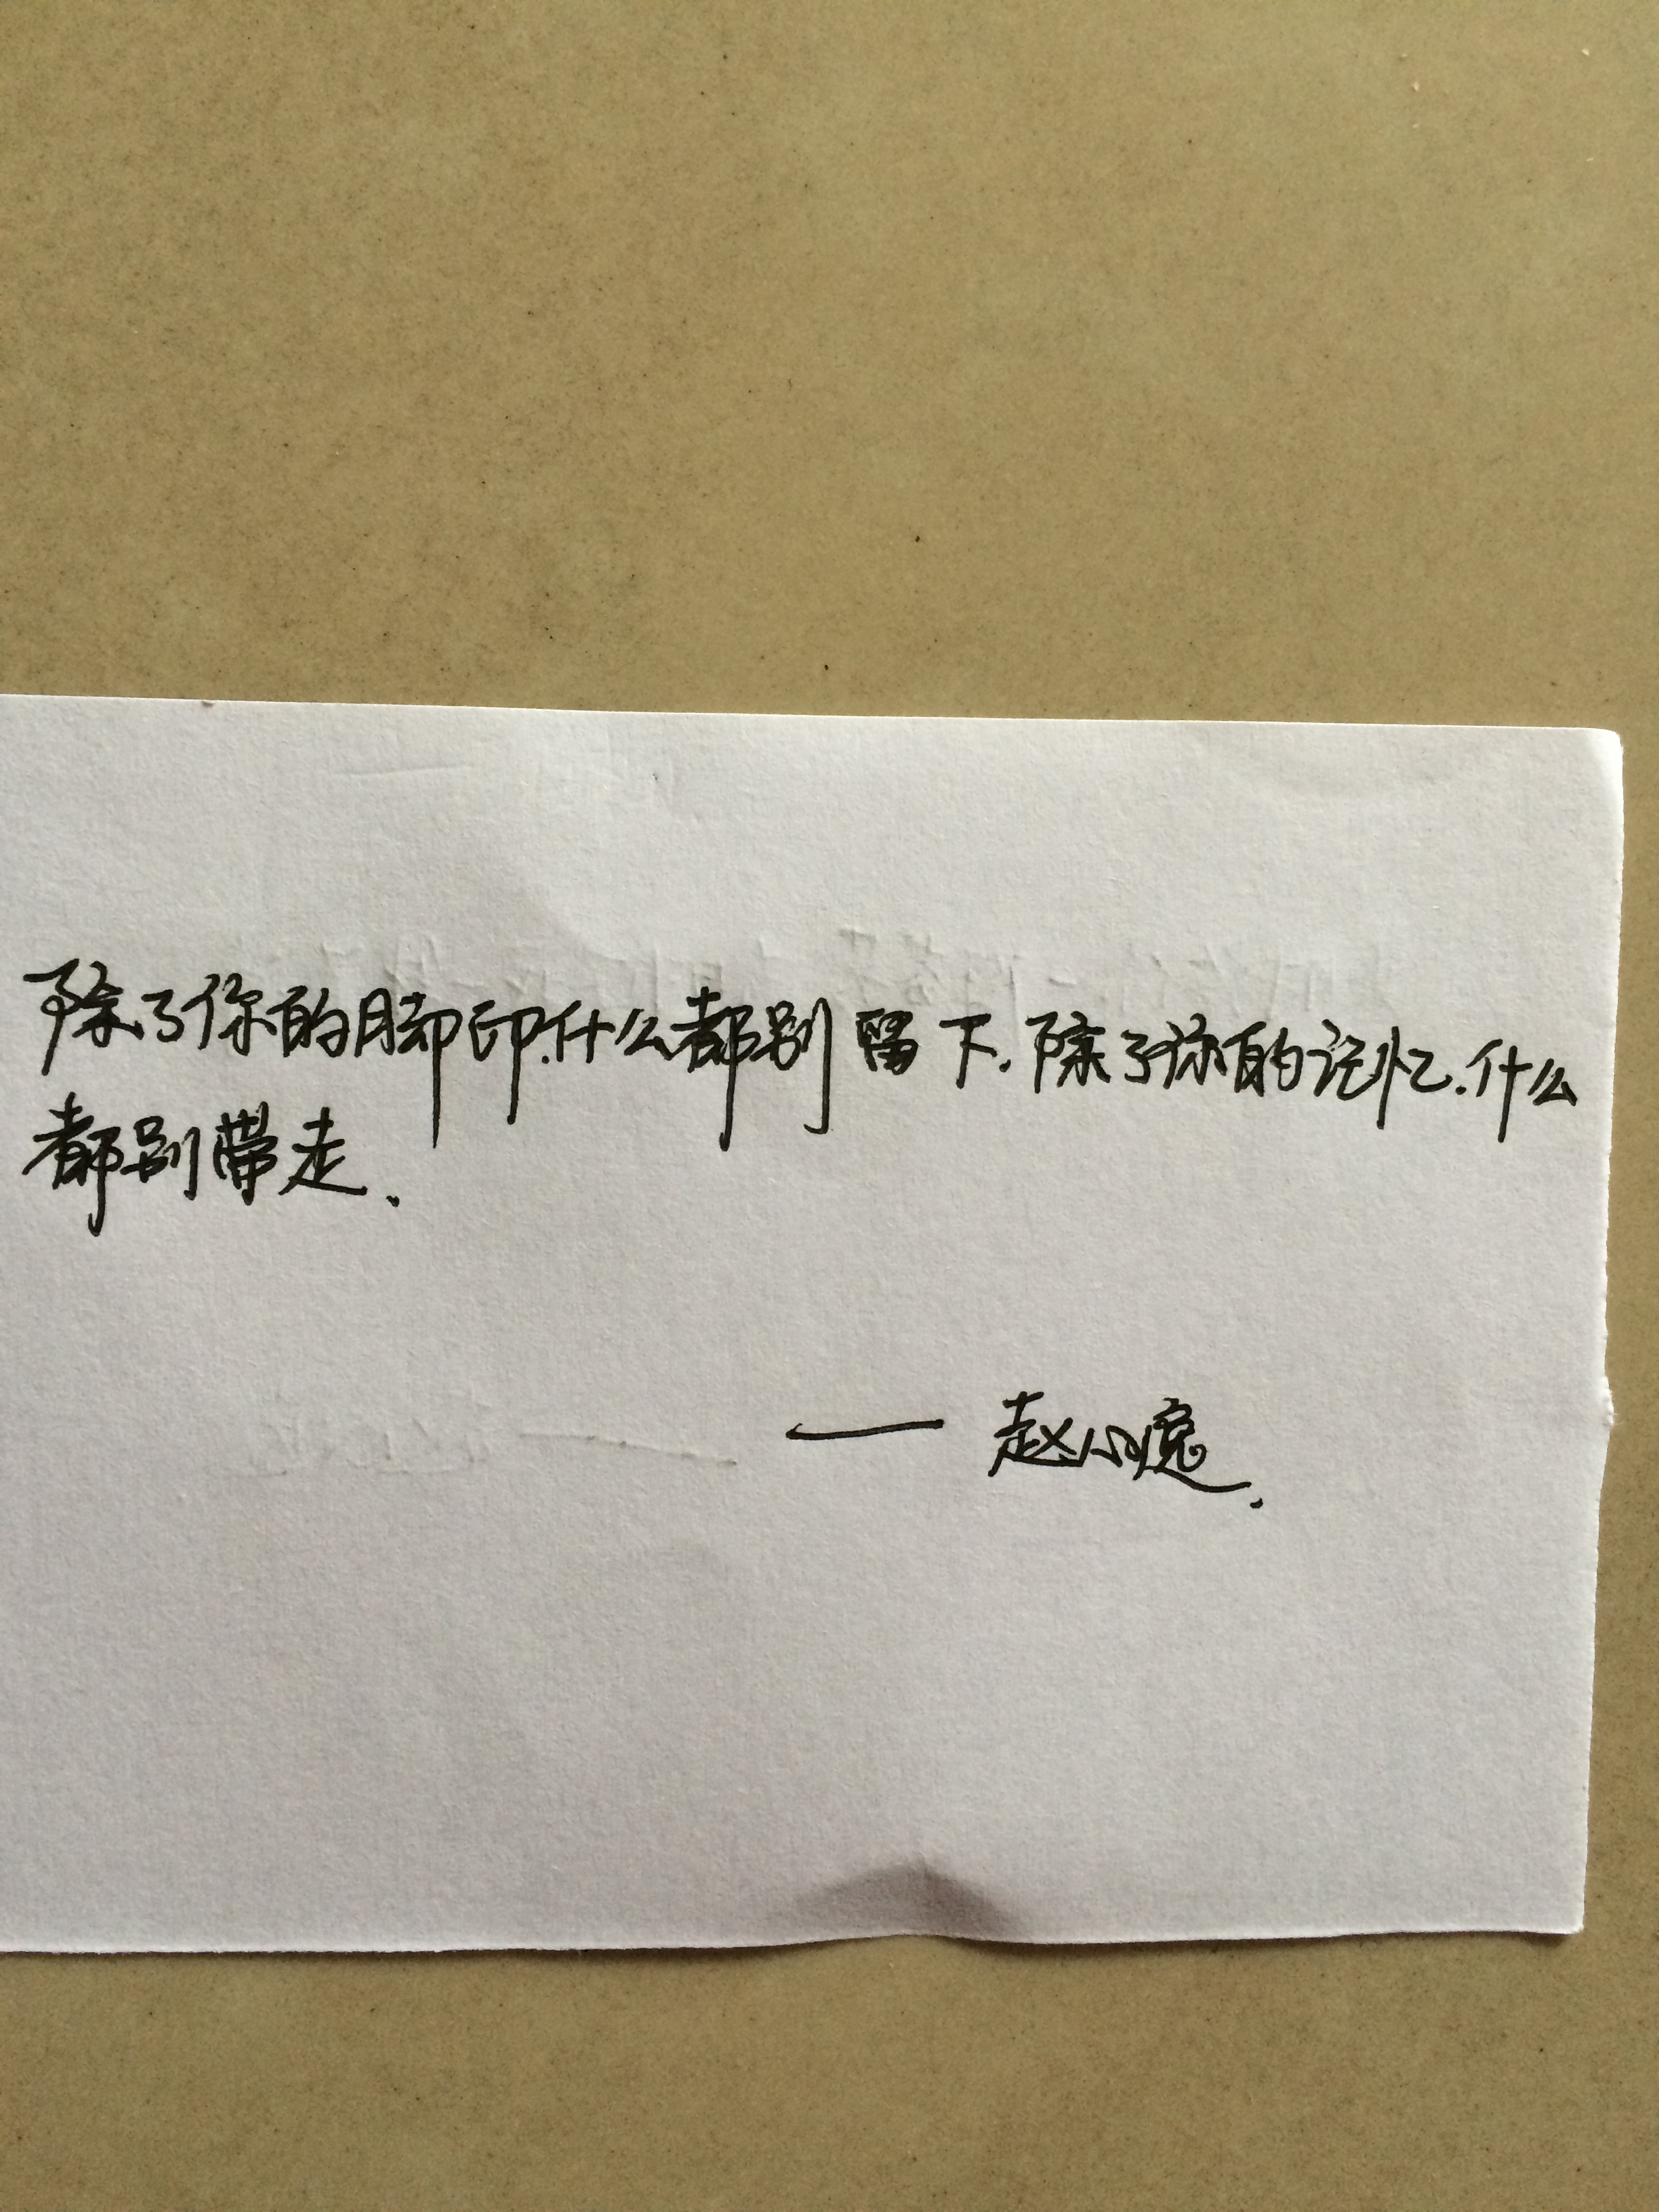 除了你的脚印.什么都别留下.除了你的记忆.什么
都别带走.
—— 赵小